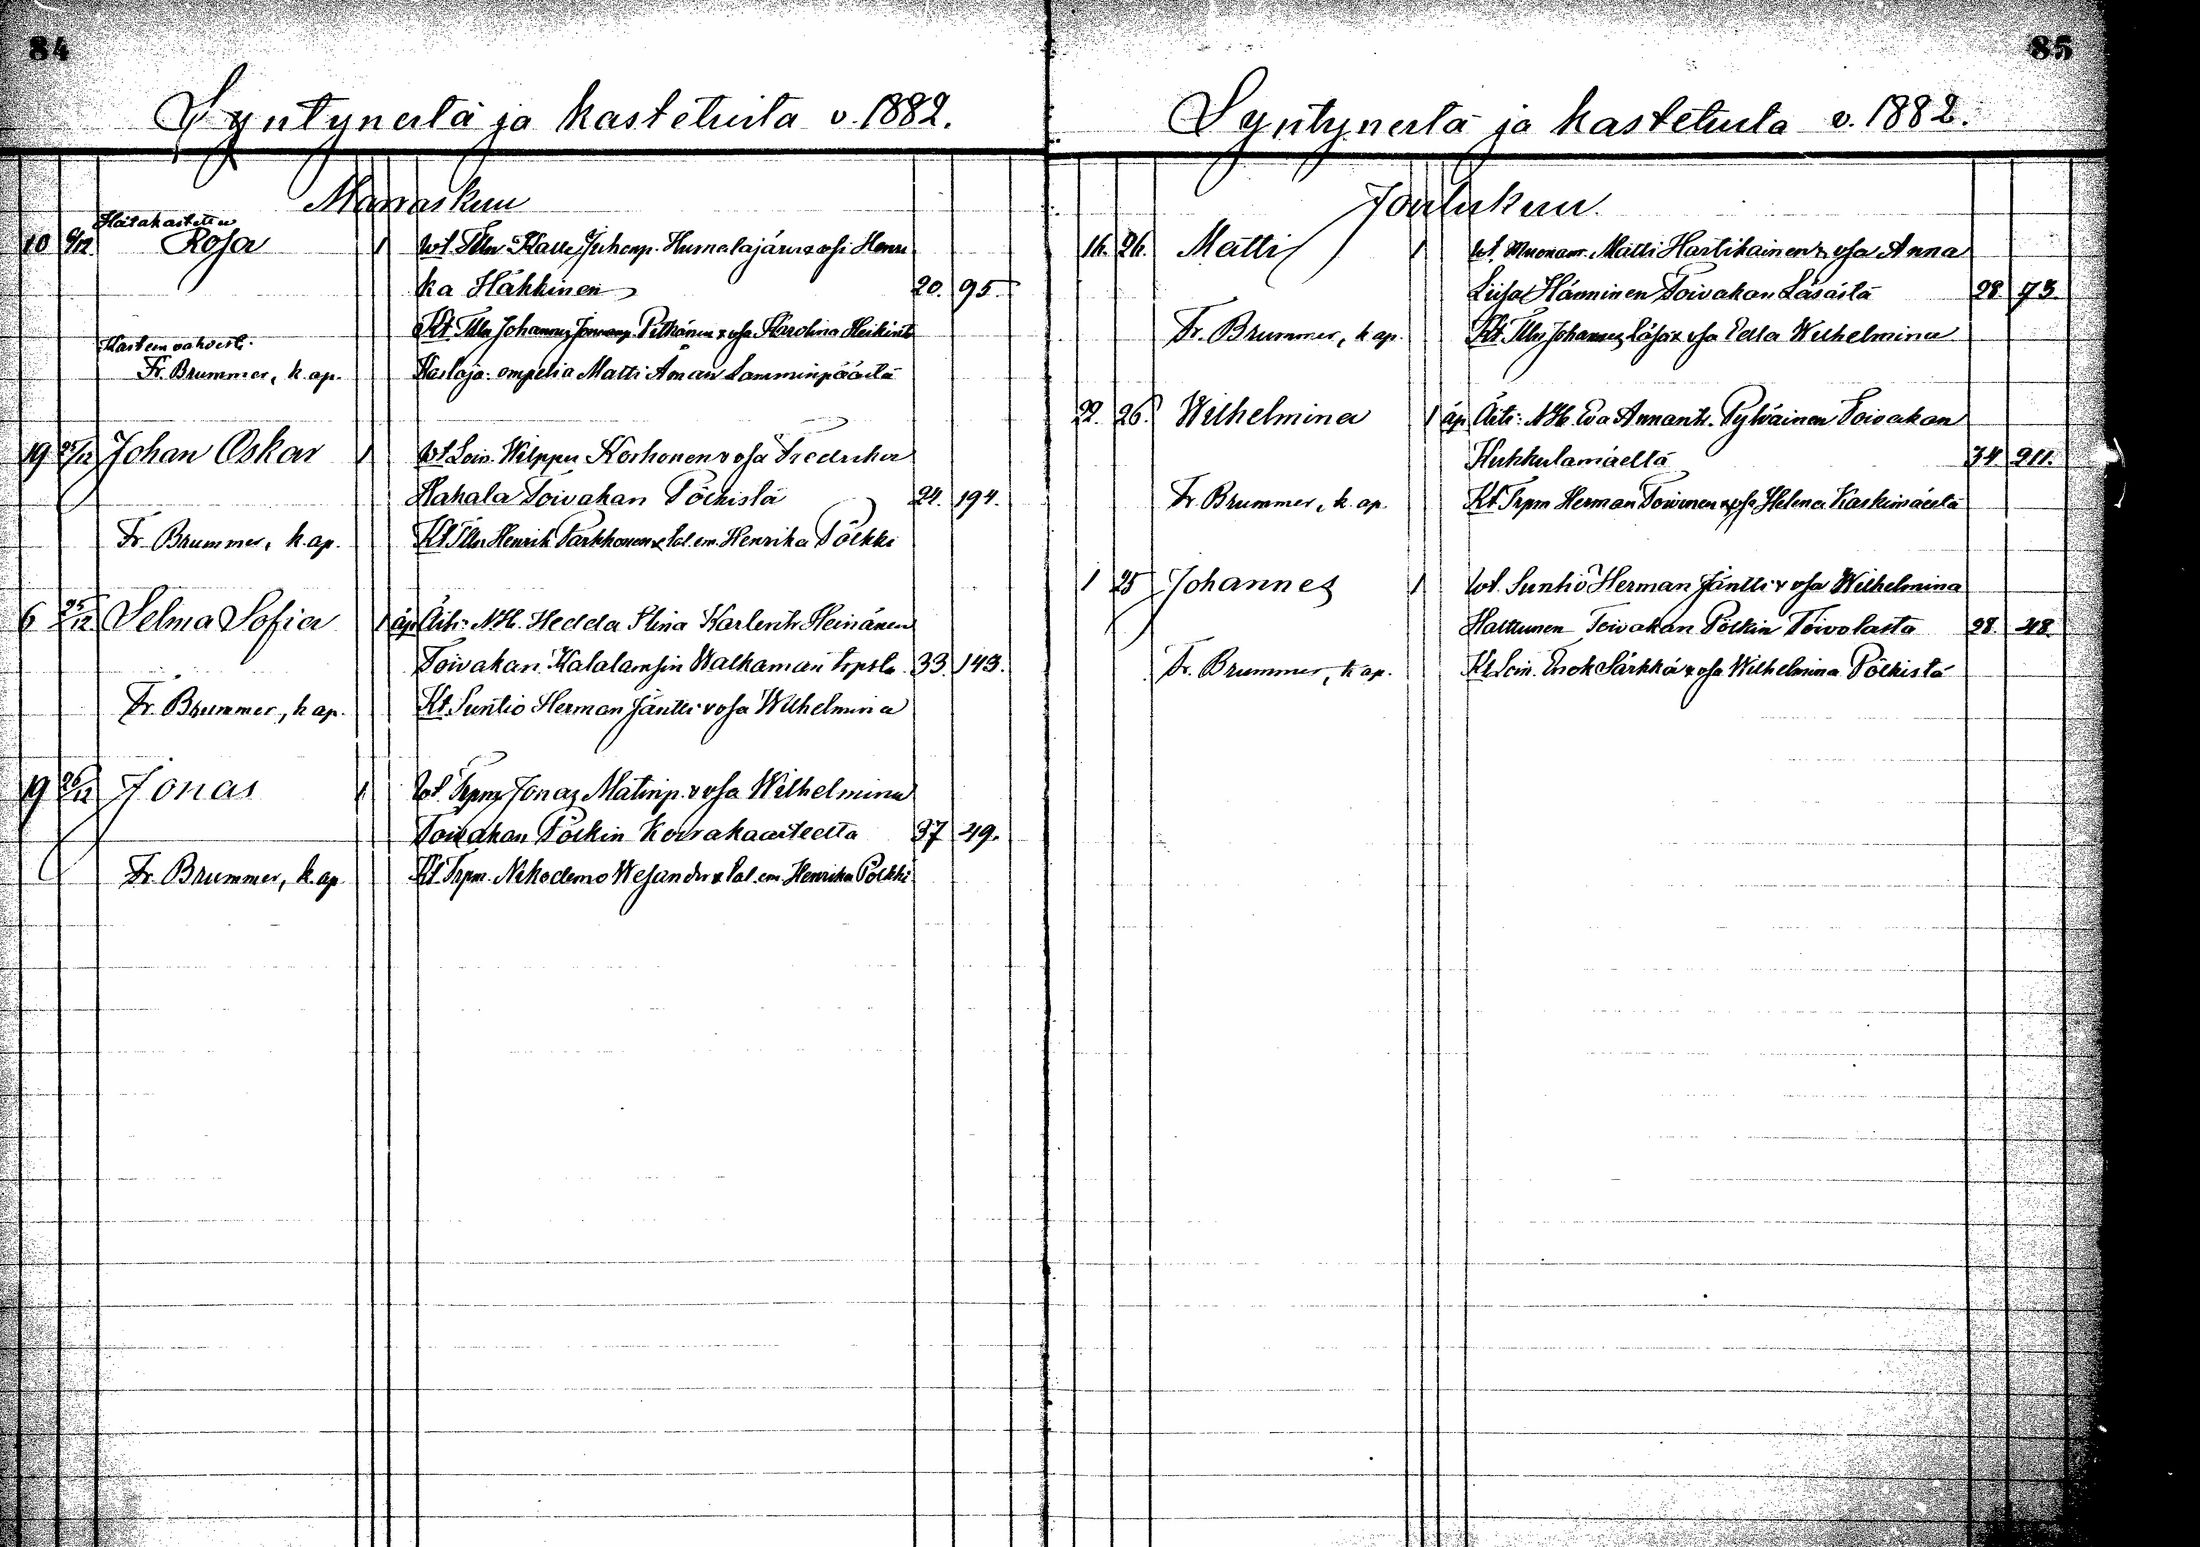 84
Syntyneitä ja kastetuita v. 1882.
Marraskuu
Hätäkastettu
10 9/12 Rosa 1 Wt. Tlln Kalle Juhonp. Humalajärvi & vsa Henri
ka Häkkinen 20. 95.
Kt. Tlln Johannes Joonanp. Pitkänen & vsa Karolina Heikint.
Kasteen vahvist.
Fr. Brummer, k. ap. Kastaja: ompelia Matti Åman Lamminpäästä
19 25/12 Johan Oskar 1 Wt. Lois. Wilppu Korhonen & vsa Fredrika
Hahala Toivakan Pölkistä 24. 194.
Fr. Brummer, k. ap. Kt. Tlln Henrik Parkkonen & tal. em. Henrika Pölkki
6 25/12 Selma Sofia 1 äp. Äiti: N:H. Hedda Stina Karlent. Heinänen
Toivakan Kalalamsin Walkaman trpsta. 33. 143.
Fr. Brummer, k. ap. Kt. Suntio Herman Jäntti & vsa Wilhelmina
19 26/12 Jonas 1 Wt. Trpm. Jonas Matinp. & vsa Wilhelmina
Toivakan Pölkin Koirakaarteelta 37 49.
Fr. Brummer, k. ap. Kt. Trpm. Nikodemo Wesander & tal. em. Henrika Pölkki
85
Syntyneitä ja kastetuita v. 1882.
Joulukuu.
16. 26. Matti 1 Wt. Muonam. Matti Hartikainen & vsa Anna
Liisa Hänninen Toivakan Läsästä 28 73.
Fr. Brummer, k. ap. Kt. Tlln Johannes Läsä & vsa Edla Wilhelmina
22. 26. Wilhelmina 1 äp. Äiti: N:H. Eva Annant. Pylväinen Toivakan
Hukkulamäeltä 34 211.
Fr. Brummer, k. ap. Kt. Trpm Herman Toivonen & vsa Helena Kaskimäeltä
1 25 Johannes 1 Wt. Suntio Herman Jäntti & vsa Wilhelmina
Halttunen Toivakan Pölkin Toivolasta 28. 48.
Fr. Brummer, k. ap. Kt. Lois. Enok Särkkä & vsa Wilhelmina Pölkistä